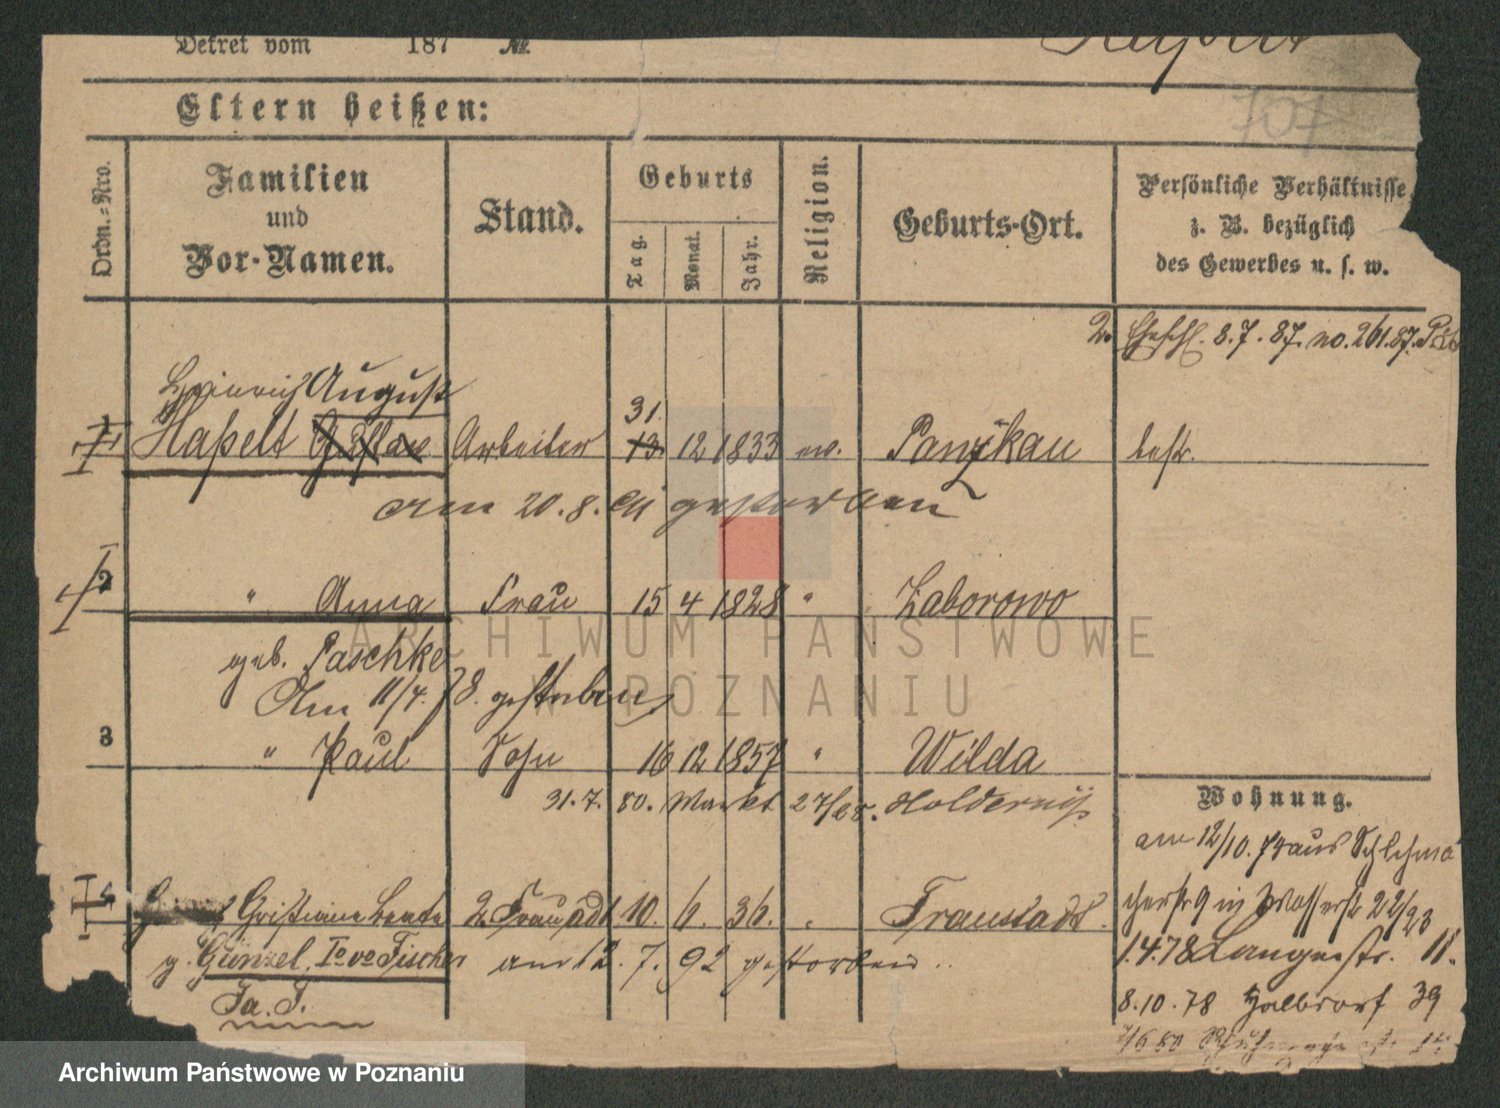 Dekret vom 187 №
707
Eltern heißen:
Ordn.-Nro.
Familien
und
Vor-Namen.
Stand.
Geburts
Tag.
Monat.
Jahr.
Religion.
Geburts-Ort.
Persönliche Verhältnisse
z. B. bezüglich
des Gewerbes u. s. w.
2. Eheschl. 8.7.87. no. 261.87.
Heinrich August
1 Haßelt Gustav Arbeiter 31. 13 12 1833 ev. Panzkau bestr.
am 20.8. gestorben
2 " Anna Frau 15 4 1828 " Zaborowo
geb. Paschke
Am 11/4. 78. gestorben
3 " Paul Sohn 16 12 1857 " Wilda
31.7.80. Markt 27/
Wohnung.
am 12/10. aus
4 2 Frau adt 10. 6. 36. Fraustadt.
in Wasserstr 22/23
g. Günzel. Io vo Fischer am 12.7.92 gestorben
1.4.78 Langestr. 11.
Fa. F.
8.10.78 Halbdorf 39
ARCHIWUM PAŃSTWOWE
W POZNANIU
Archiwum Państwowe w Poznaniu